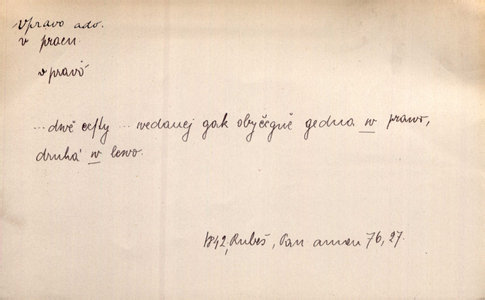 vpravo adv.
v pravu
v právo
... dwě cesty ... wedauej gak obyčegně gedna w prawo,
druhá w lewo.
1842, Rubeš, Pan aman 76, 27.